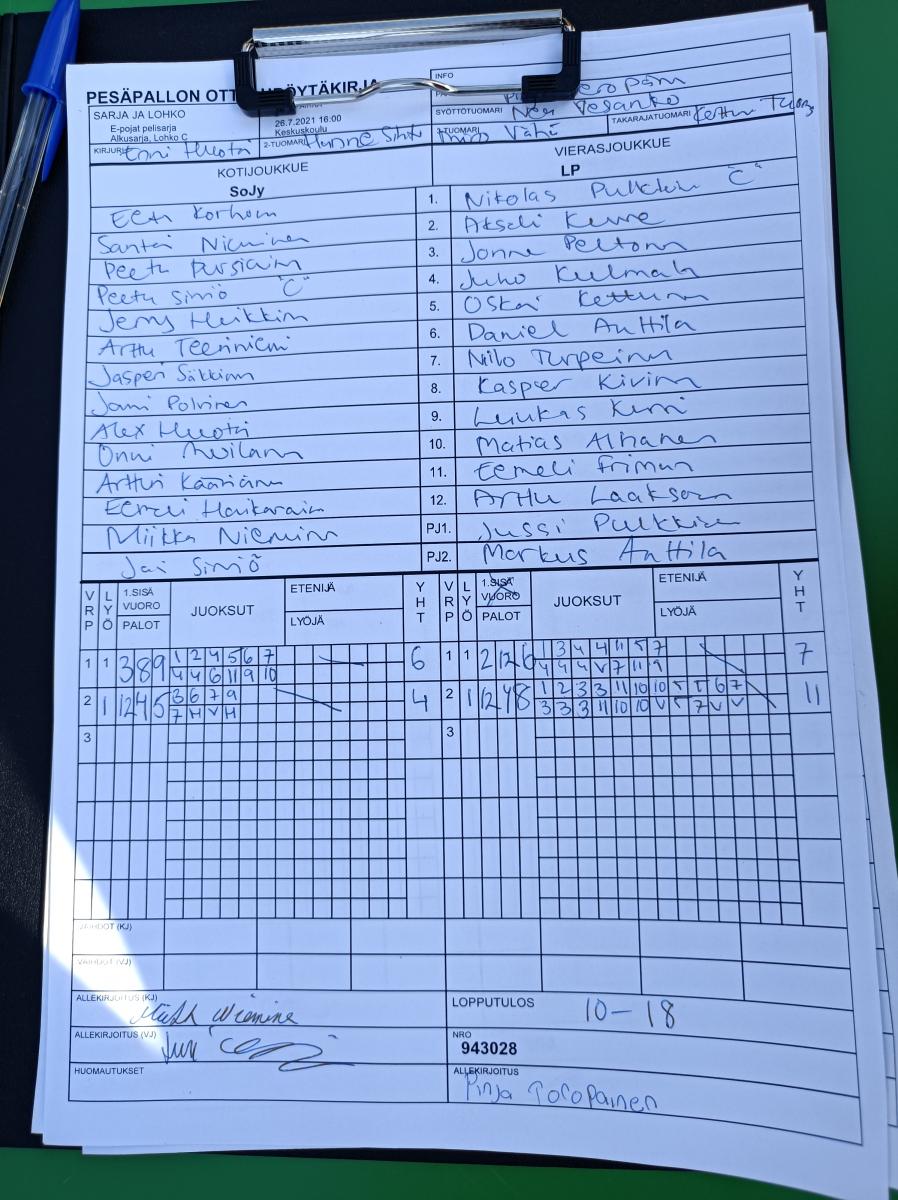 PESÄPALLON OTT PÖYTÄKIRJA
SARJA JA LOHKO
E-pojat pelisarja
Alkusarja, Lohko C
26.7.2021 16:00
Keskuskoulu
INFO
SYÖTTÖTUOMARI Vesanko
TAKARAJATUOMARI
KIRJURI Enni Huotri
2-TUOMARI Hanne
3-TUOMARI Vähi
KOTIJOUKKUE
SoJy
VIERASJOUKKUE
LP
Eetu Korhonn 1. Nikolas Pulkkin "C"
Santeri Nieminen 2. Akseli Kenne
Peetu Pursiainn 3. Janne Peltonn
Peetu Simiö "C" 4. Juho Kulmala
Jeny Heikkinn 5. Oskari Kettunn
Arttu Teeriniemi 6. Daniel Anttila
Jasperi Säkkinn 7. Niilo Turpeinn
Jami Polvinen 8. Kasper Kivinn
Alex Huotri 9. Luukas Kessi
Onni Avilann 10. Matias Alhanen
Artturi Kääriänn 11. Eemeli Friman
Eemeli Haikarain 12. Arttu Laaksonn
Miikka Nieminn PJ1. Jussi Pulkkinn
Jari Simiö PJ2. Markus Anttila
VRP LYÖ 1.SISÄ VUORO PALOT JUOKSUT ETENIJÄ LYÖJÄ YHT VRP LYÖ 1.SISÄ VUORO PALOT JUOKSUT ETENIJÄ LYÖJÄ YHT
1 1 3 8 9 1 2 4 5 6 7 6 1 1 2 12 6 1 3 4 4 11 5 7 7
4 4 6 11 9 10 4 4 4 V 7 11 9
2 1 12 4 5 3 6 7 9 4 2 1 12 4 8 1 2 3 3 11 10 10 5 5 6 7 11
7 H V H 3 3 3 11 10 10 V 5 7 V V
3 3
VAIHDOT (KJ)
VAIHDOT (VJ)
ALLEKIRJOITUS (KJ)
LOPPUTULOS 10-18
ALLEKIRJOITUS (VJ)
NRO
943028
HUOMAUTUKSET
ALLEKIRJOITUS
Pinja Toropainen